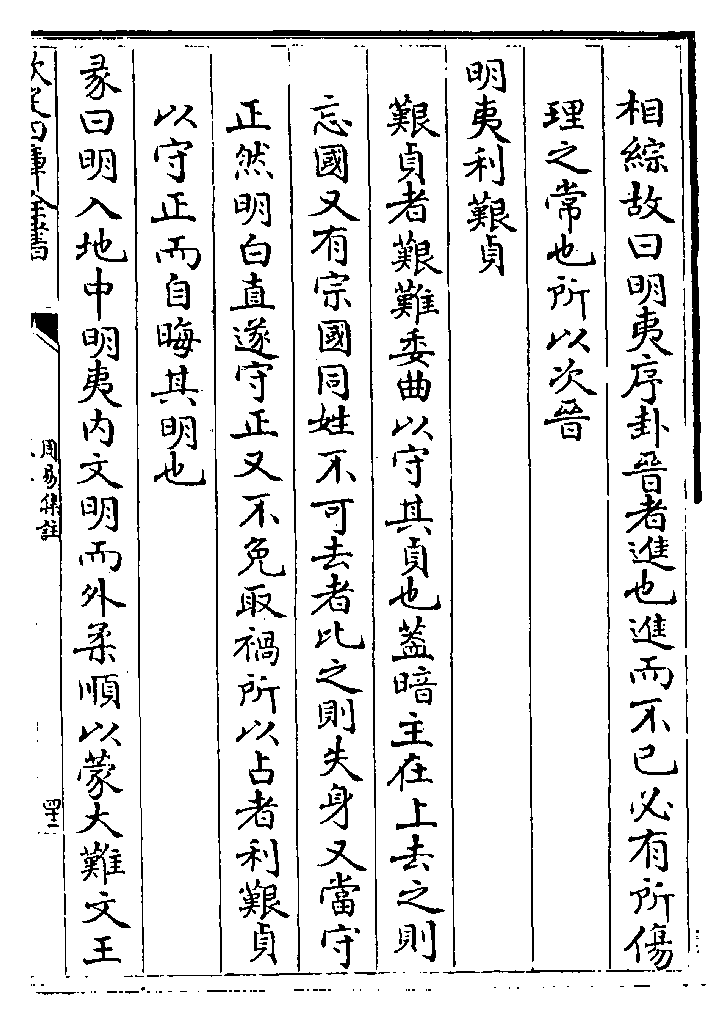 相綜故曰明夷序卦晉者進也進而不已必有所傷
理之常也所以次晉
明夷利艱貞
艱貞者艱難委曲以守其貞也蓋暗主在上去之則
忘國又有宗國同姓不可去者比之則失身又當守
正然明白直遂守正又不免取禍所以占者利艱貞
以守正而自晦其明也
彖曰明入地中明夷内文明而外柔順以蒙大難文王
欽定四庫全書
周易集註